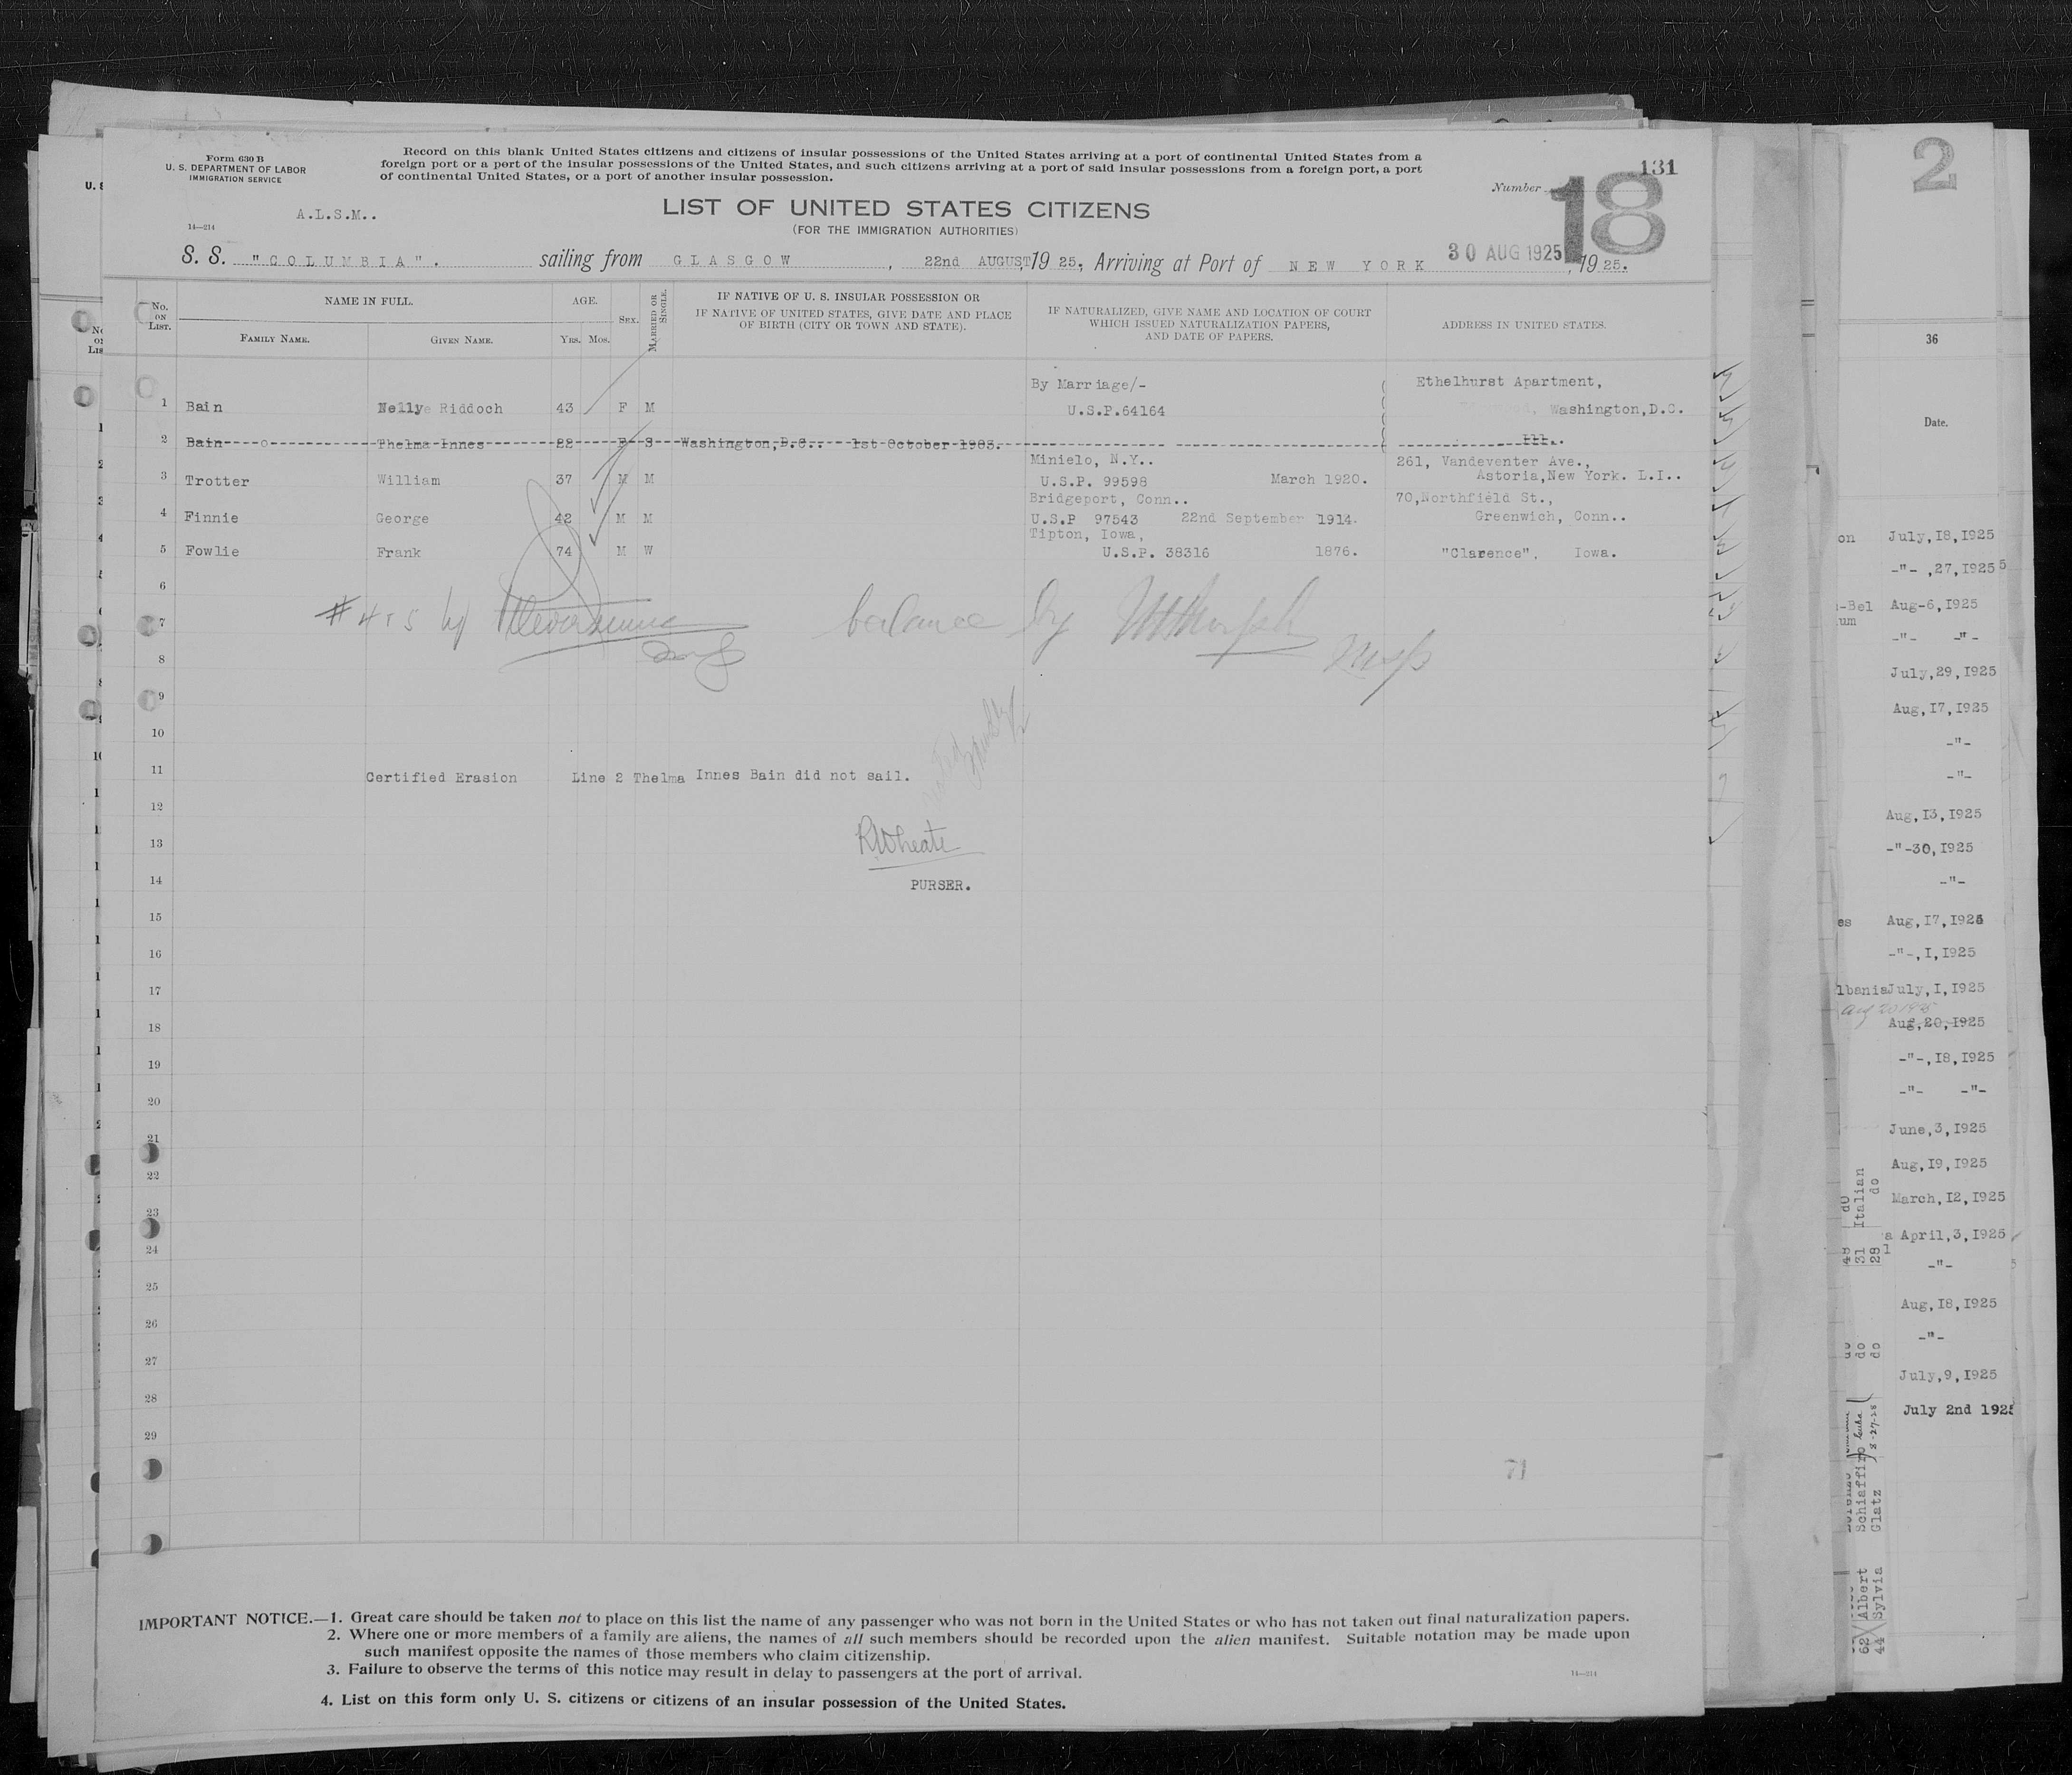 Form 630 B
U. S. DEPARTMENT OF LABOR
IMMIGRATION SERVICE
Record on this blank United States citizens and citizens of insular possessions of the United States arriving at a port of continental United States from a
foreign port or a port of the insular possessions of the United States, and such citizens arriving at a port of said insular possessions from a foreign port, a port
of continental United States, or a port of another insular possession.
131
Number
18
A.L.S.M..
14—214
LIST OF UNITED STATES CITIZENS
(FOR THE IMMIGRATION AUTHORITIES)
S. S. "COLUMBIA". sailing from GLASGOW, 22nd AUGUST, 1925, Arriving at Port of NEW YORK 30 AUG 1925, 1925.
No. ON LIST.
NAME IN FULL.
FAMILY NAME.
GIVEN NAME.
AGE.
YRS. MOS.
SEX.
MARRIED OR SINGLE.
IF NATIVE OF U. S. INSULAR POSSESSION OR
IF NATIVE OF UNITED STATES, GIVE DATE AND PLACE
OF BIRTH (CITY OR TOWN AND STATE).
IF NATURALIZED, GIVE NAME AND LOCATION OF COURT
WHICH ISSUED NATURALIZATION PAPERS,
AND DATE OF PAPERS.
ADDRESS IN UNITED STATES.
By Marriage/- Ethelhurst Apartment,
1 Bain Nellye Riddoch 43 F M U.S.P.64164 Washington,D.C.
2 Bain Thelma Innes 22 F S Washington,D.C.. 1st October 1903.
Minielo, N.Y.. 261, Vandeventer Ave.,
3 Trotter William 37 M M U.S.P. 99598 March 1920. Astoria,New York. L.I..
Bridgeport, Conn.. 70,Northfield St.,
4 Finnie George 42 M M U.S.P 97543 22nd September 1914. Greenwich, Conn..
Tipton, Iowa,
5 Fowlie Frank 74 M W U.S.P. 38316 1876. "Clarence", Iowa.
6
# 4 & 5 by balance by
7
8
9
10
11 Certified Erasion Line 2 Thelma Innes Bain did not sail.
12
13
PURSER.
14
15
16
17
18
19
20
21
22
23
24
25
26
27
28
29
71
IMPORTANT NOTICE.—1. Great care should be taken not to place on this list the name of any passenger who was not born in the United States or who has not taken out final naturalization papers.
2. Where one or more members of a family are aliens, the names of all such members should be recorded upon the alien manifest. Suitable notation may be made upon
such manifest opposite the names of those members who claim citizenship.
3. Failure to observe the terms of this notice may result in delay to passengers at the port of arrival.
4. List on this form only U. S. citizens or citizens of an insular possession of the United States.
14—214
2
36
Date.
on July,18,1925
-"- ,27,1925
Aug-6,1925
-"- -"-
July,29,1925
Aug,17,1925
-"-
-"-
Aug,13,1925
-"-30,1925
-"-
es Aug,17,1925
-"-,1,1925
lbania July,1,1925
Aug 20 1925
Aug,20,1925
-"-,18,1925
-"- -"-
June,3,1925
Aug,19,1925
March,12,1925
a April,3,1925
-"-
Aug,18,1925
-"-
July,9,1925
July 2nd 1925
62 Albert Schiaffino do 31 Italian
44 Sylvia Glatz do 28 do